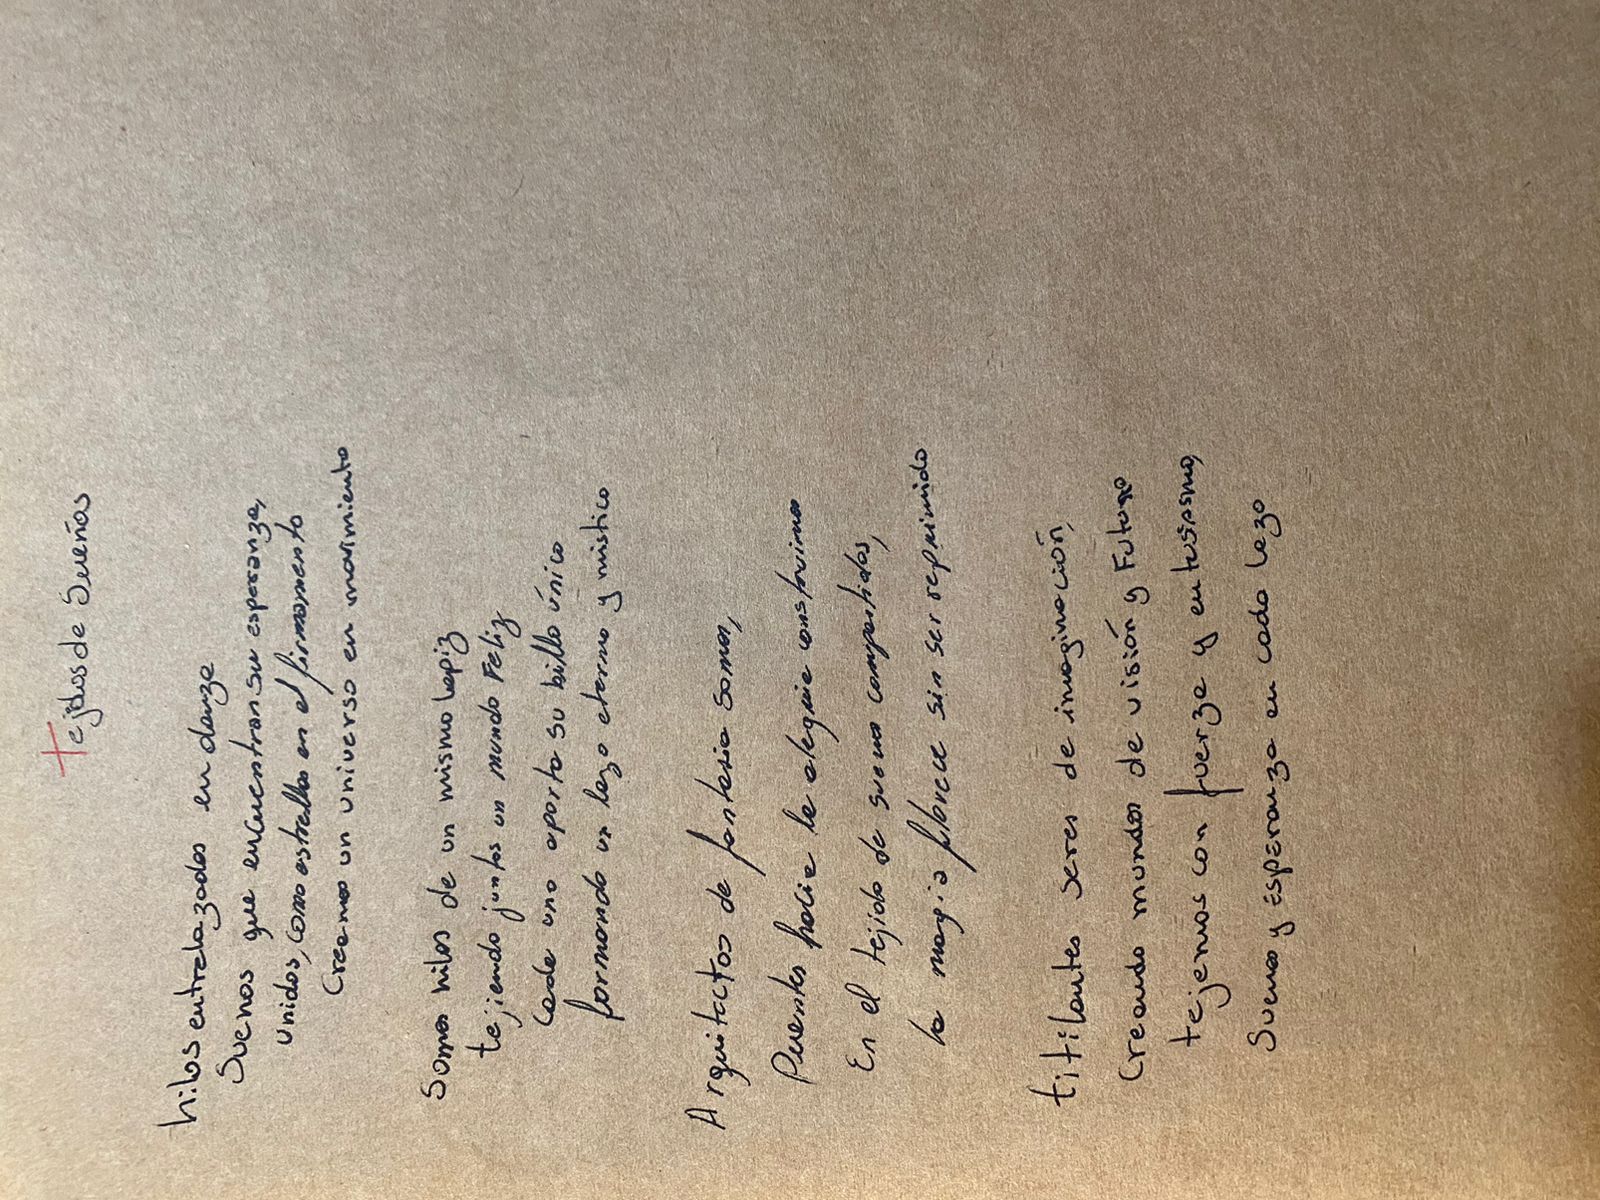 tejidos de Sueños
hilos entrelazados en danza
Suenos que encuentran su esperanza,
unidos, como estrellas en el firmamento
Creamos un universo en movimiento
Somos hilos de un mismo lapiz
tejiendo juntos un mundo Feliz
Cada uno aporta su billo único
formando un lazo eterno y mistico
Arquitectos de fantasia somos,
Puentes hacia la alegria construimos
En el tejido de suenos compartidos,
la magia florece sin ser reprimido
titilantes seres de imaginación,
Creando mundos de visión y Futuro
tejemos con fuerza y entusiasmo,
Suenos y esperanza en cada lazo